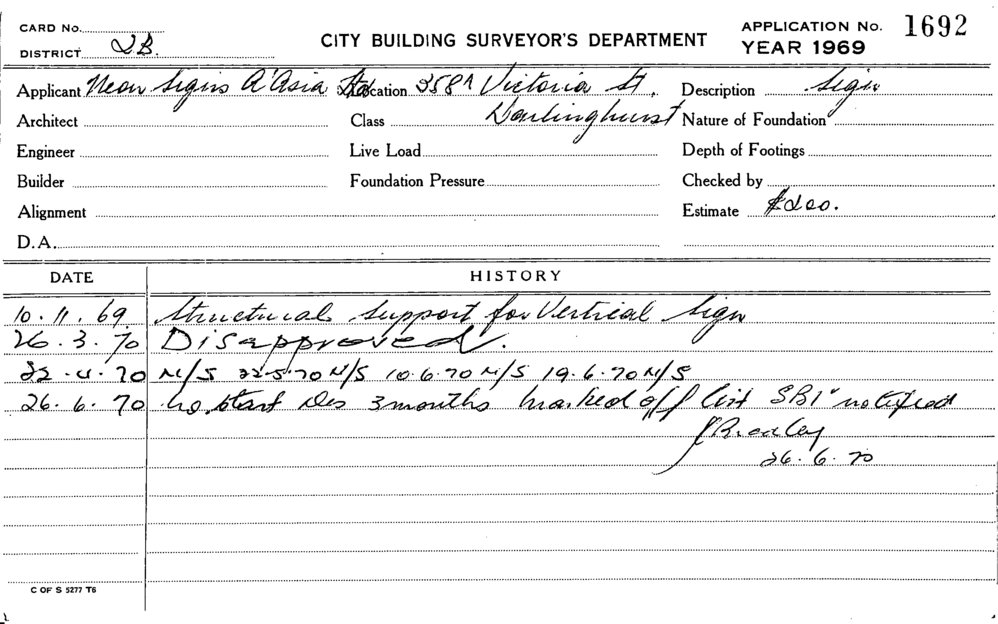 CARD No.
DISTRICT 2B.
CITY BUILDING SURVEYOR'S DEPARTMENT
APPLICATION No. 1692
YEAR 1969
Applicant Neon Signs A'Asia Location 358A Victoria St. Description Sign
Architect Class Darlinghurst Nature of Foundation
Engineer Live Load Depth of Footings
Builder Foundation Pressure Checked by
Alignment Estimate $200.
D.A.
DATE HISTORY
10.11.69 Structural support for Vertical Sign
26.3.70 Disapproved.
22.4.70 N/S 22.5.70 N/S 10.6.70 N/S 19.6.70 N/S
26.6.70 no start 3 months marked off list SBI notified
Bradley
26.6.70
C OF S 5277 T6